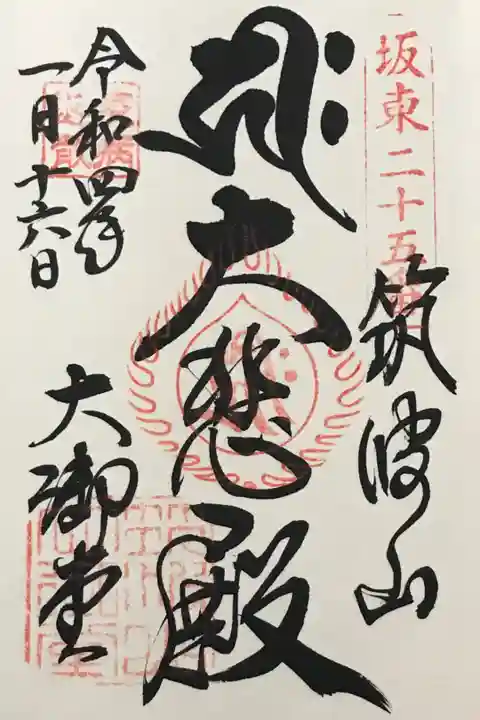 坂東二十五番
筑波山
大悲殿
令和四年
一月十六日
大御堂